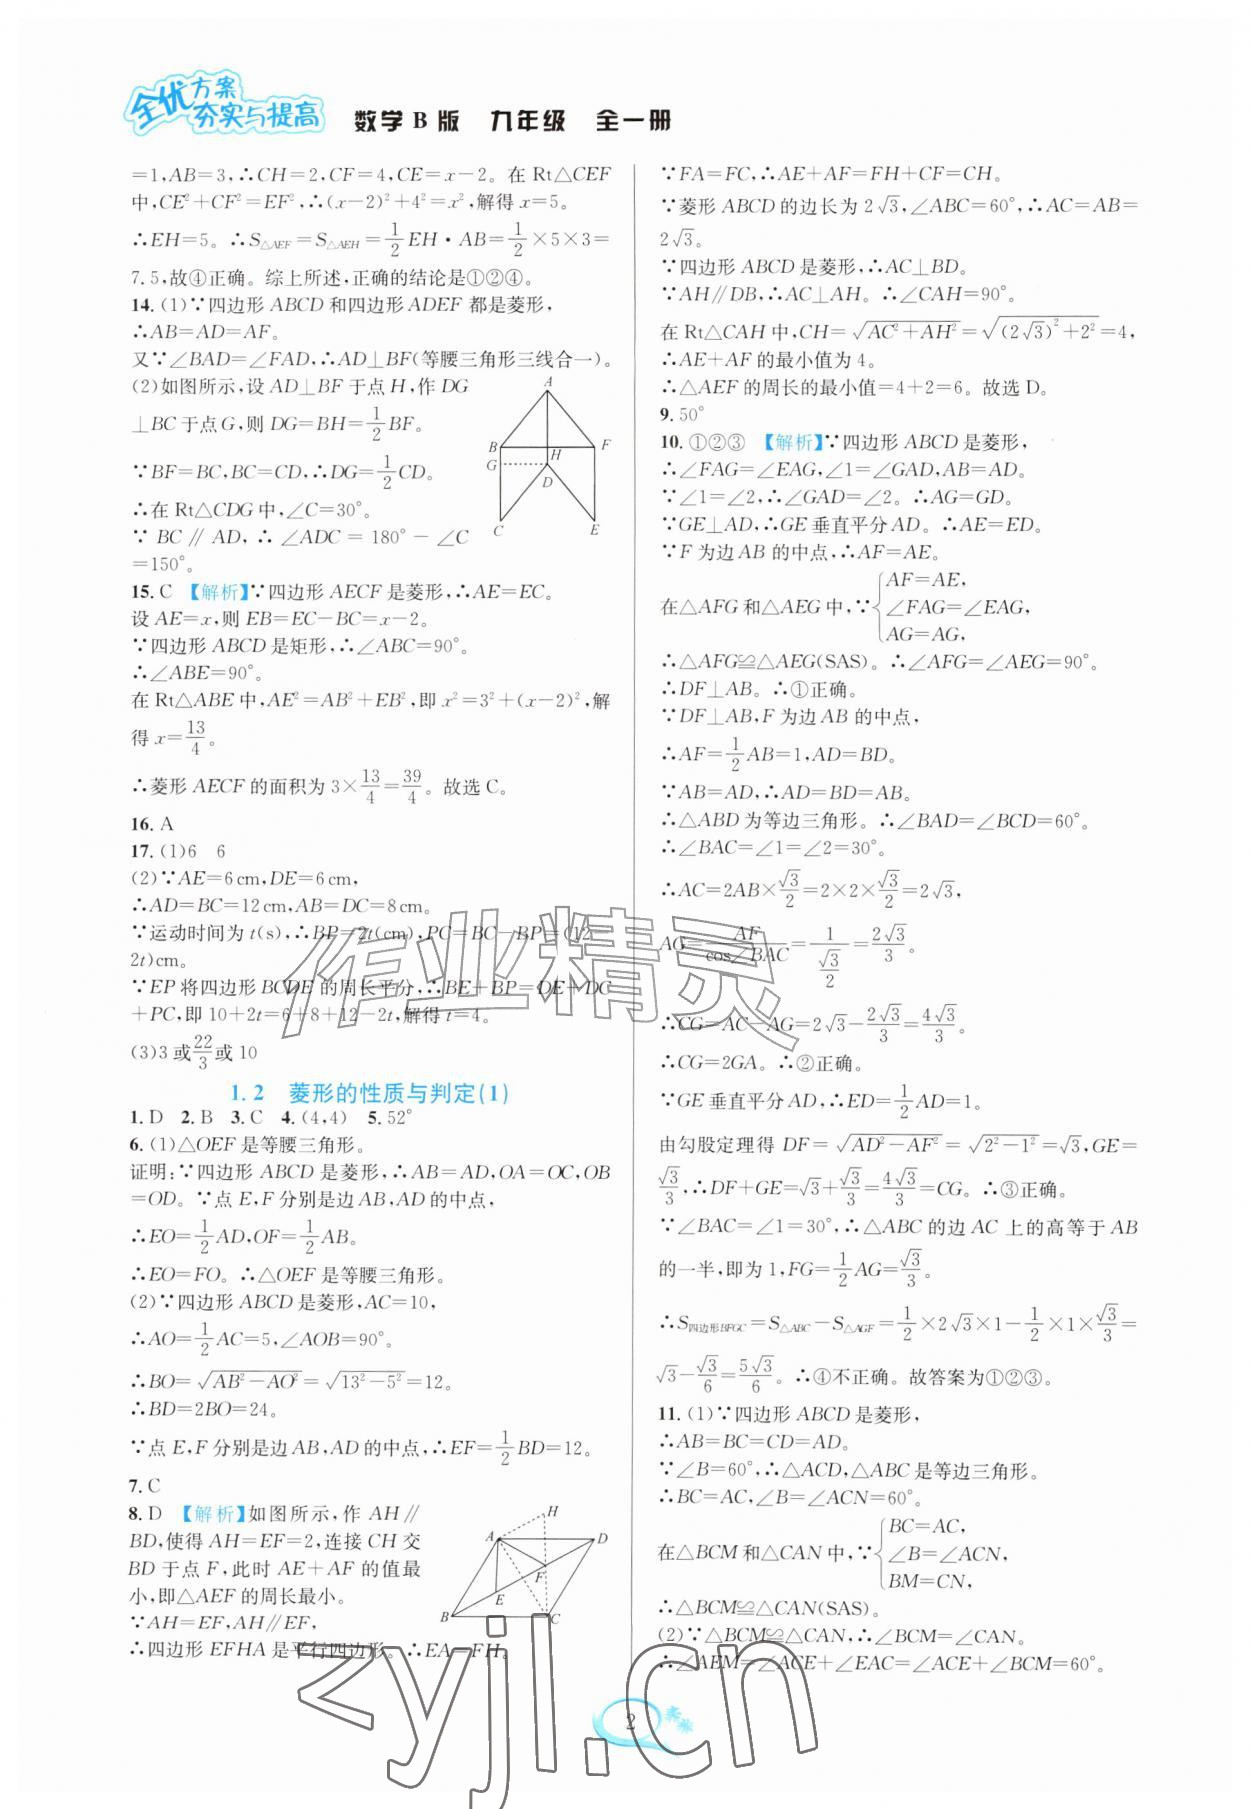 全优方案
夯实与提高
数学B版 九年级 全一册
=1,AB=3,∴CH=2,CF=4,CE=x-2。在Rt△CEF
中,CE²+CF²=EF²,∴(x-2)²+4²=x²,解得x=5。
∴EH=5。∴S△AEF=S△AEH=1/2EH·AB=1/2×5×3=
7.5,故④正确。综上所述,正确的结论是①②④。
14.(1)∵四边形ABCD和四边形ADEF都是菱形,
∴AB=AD=AF。
又∵∠BAD=∠FAD,∴AD⊥BF(等腰三角形三线合一)。
(2)如图所示,设AD⊥BF于点H,作DG
⊥BC于点G,则DG=BH=1/2BF。
∵BF=BC,BC=CD,∴DG=1/2CD。
∴在Rt△CDG中,∠C=30°。
∵BC∥AD,∴∠ADC=180°-∠C
=150°。
A
B
H
F
G
D
C
E
15.C 【解析】∵四边形AECF是菱形,∴AE=EC。
设AE=x,则EB=EC-BC=x-2。
∵四边形ABCD是矩形,∴∠ABC=90°。
∴∠ABE=90°。
在Rt△ABE中,AE²=AB²+EB²,即x²=3²+(x-2)²,解
得x=13/4。
∴菱形AECF的面积为3×13/4=39/4。故选C。
16.A
17.(1)6 6
(2)∵AE=6cm,DE=6cm,
∴AD=BC=12cm,AB=DC=8cm。
∵运动时间为t(s),∴BP=2t(cm),PC=BC-BP=(12-
2t)cm。
∵EP将四边形BCDE的周长平分,∴BE+BP=DE+DC
+PC,即10+2t=6+8+12-2t,解得t=4。
(3)3或22/3或10
1.2 菱形的性质与判定(1)
1.D 2.B 3.C 4.(4,4) 5.52°
6.(1)△OEF是等腰三角形。
证明:∵四边形ABCD是菱形,∴AB=AD,OA=OC,OB
=OD。∵点E,F分别是边AB,AD的中点,
∴EO=1/2AD,OF=1/2AB。
∴EO=FO。∴△OEF是等腰三角形。
(2)∵四边形ABCD是菱形,AC=10,
∴AO=1/2AC=5,∠AOB=90°。
∴BO=√(AB²-AO²)=√(13²-5²)=12。
∴BD=2BO=24。
∵点E,F分别是边AB,AD的中点,∴EF=1/2BD=12。
7.C
8.D 【解析】如图所示,作AH∥
BD,使得AH=EF=2,连接CH交
BD于点F,此时AE+AF的值最
小,即△AEF的周长最小。
∵AH=EF,AH∥EF,
∴四边形EFHA是平行四边形。∴EA=FH。
H
A
D
F
E
B
C
∵FA=FC,∴AE+AF=FH+CF=CH。
∵菱形ABCD的边长为2√3,∠ABC=60°,∴AC=AB=
2√3。
∵四边形ABCD是菱形,∴AC⊥BD。
∵AH∥DB,∴AC⊥AH。∴∠CAH=90°。
在Rt△CAH中,CH=√(AC²+AH²)=√((2√3)²+2²)=4,
∴AE+AF的最小值为4。
∴△AEF的周长的最小值=4+2=6。故选D。
9.50°
10.①②③ 【解析】∵四边形ABCD是菱形,
∴∠FAG=∠EAG,∠1=∠GAD,AB=AD。
∵∠1=∠2,∴∠GAD=∠2。∴AG=GD。
∵GE⊥AD,∴GE垂直平分AD。∴AE=ED。
∵F为边AB的中点,∴AF=AE。
在△AFG和△AEG中,∵{AF=AE,
∠FAG=∠EAG,
AG=AG,
∴△AFG≌△AEG(SAS)。∴∠AFG=∠AEG=90°。
∴DF⊥AB。∴①正确。
∵DF⊥AB,F为边AB的中点,
∴AF=1/2AB=1,AD=BD。
∵AB=AD,∴AD=BD=AB。
∴△ABD为等边三角形。∴∠BAD=∠BCD=60°。
∴∠BAC=∠1=∠2=30°。
∴AC=2AB×√3/2=2×2×√3/2=2√3,
AG=AF/cos∠BAC=1/(√3/2)=2√3/3。
∴CG=AC-AG=2√3-2√3/3=4√3/3。
∴CG=2GA。∴②正确。
∵GE垂直平分AD,∴ED=1/2AD=1。
由勾股定理得DF=√(AD²-AF²)=√(2²-1²)=√3,GE=
√3/3,∴DF+GE=√3+√3/3=4√3/3=CG。∴③正确。
∵∠BAC=∠1=30°,∴△ABC的边AC上的高等于AB
的一半,即为1,FG=1/2AG=√3/3。
∴S四边形BFGC=S△ABC-S△AGF=1/2×2√3×1-1/2×1×√3/3=
√3-√3/6=5√3/6。∴④不正确。故答案为①②③。
11.(1)∵四边形ABCD是菱形,
∴AB=BC=CD=AD。
∵∠B=60°,∴△ACD,△ABC是等边三角形。
∴BC=AC,∠B=∠ACN=60°。
在△BCM和△CAN中,∵{BC=AC,
∠B=∠ACN,
BM=CN,
∴△BCM≌△CAN(SAS)。
(2)∵△BCM≌△CAN,∴∠BCM=∠CAN。
∴∠AEM=∠ACE+∠EAC=∠ACE+∠BCM=60°。
作业精灵
zyjl.cn
2